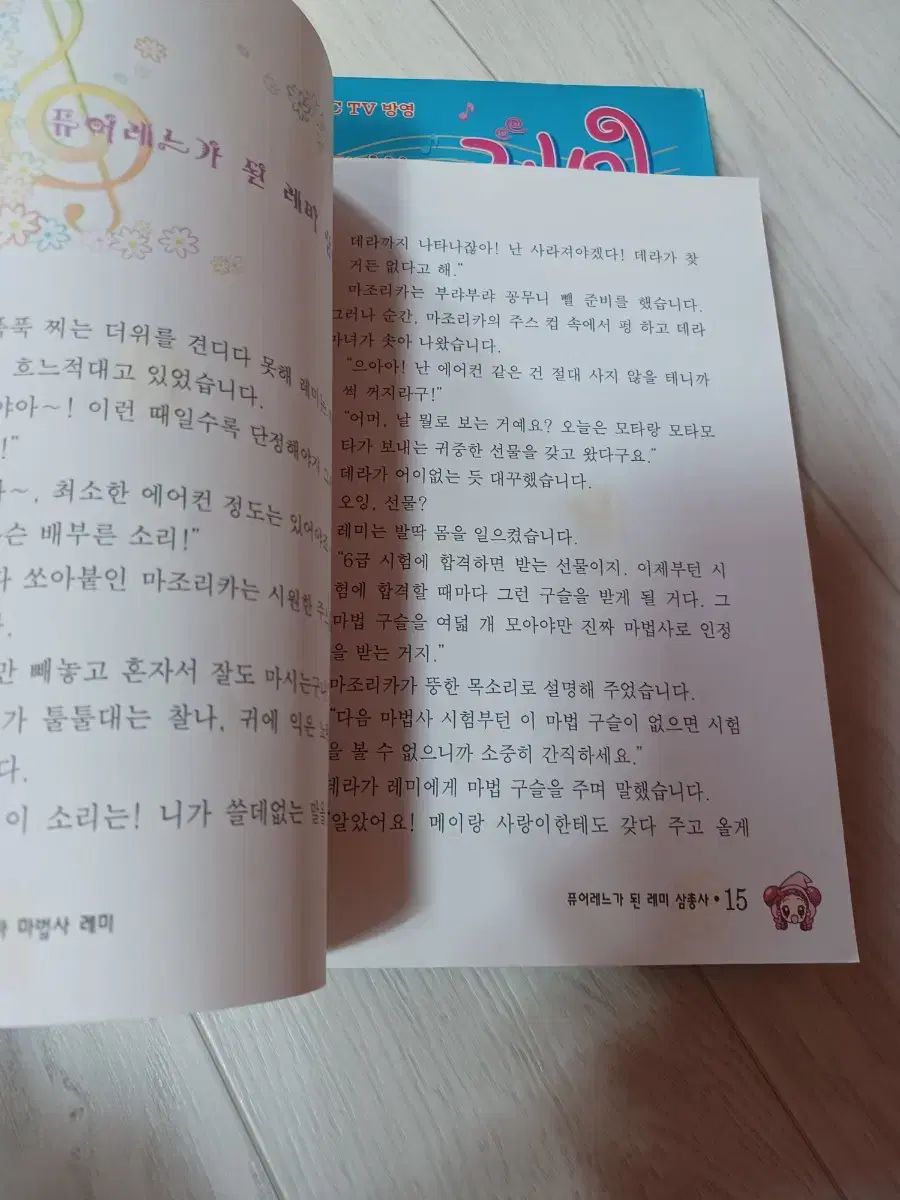 퓨어레느가 된 레미
푹 찌는 더위를 견디다 못해 레미는
흐느적대고 있었습니다.
야아~! 이런 때일수록 단정해야지
!"
~, 최소한 에어컨 정도는 있어야
배부른 소리!"
쏘아붙인 마조리카는 시원한 주스
만 빼놓고 혼자서 잘도 마시는구나
가 툴툴대는 찰나, 귀에 익은
다.
이 소리는! 니가 쓸데없는 말을
마법사 레미
C TV 방영
데라까지 나타나잖아! 난 사라져야겠다! 데라가 찾
거든 없다고 해."
마조리카는 부랴부랴 꽁무니 뺄 준비를 했습니다.
그러나 순간, 마조리카의 주스 컵 속에서 펑 하고 데라
마녀가 솟아 나왔습니다.
"으아아! 난 에어컨 같은 건 절대 사지 않을 테니까
썩 꺼지라구!"
"어머, 날 뭘로 보는 거예요? 오늘은 모타랑 모타모
타가 보내는 귀중한 선물을 갖고 왔다구요."
데라가 어이없는 듯 대꾸했습니다.
오잉, 선물?
레미는 발딱 몸을 일으켰습니다.
"6급 시험에 합격하면 받는 선물이지. 이제부턴 시
험에 합격할 때마다 그런 구슬을 받게 될 거다. 그
마법 구슬을 여덟 개 모아야만 진짜 마법사로 인정
을 받는 거지."
마조리카가 뚱한 목소리로 설명해 주었습니다.
"다음 마법사 시험부턴 이 마법 구슬이 없으면 시험
을 볼 수 없으니까 소중히 간직하세요."
데라가 레미에게 마법 구슬을 주며 말했습니다.
"알았어요! 메이랑 사랑이한테도 갖다 주고 올게
퓨어레느가 된 레미 삼총사 • 15